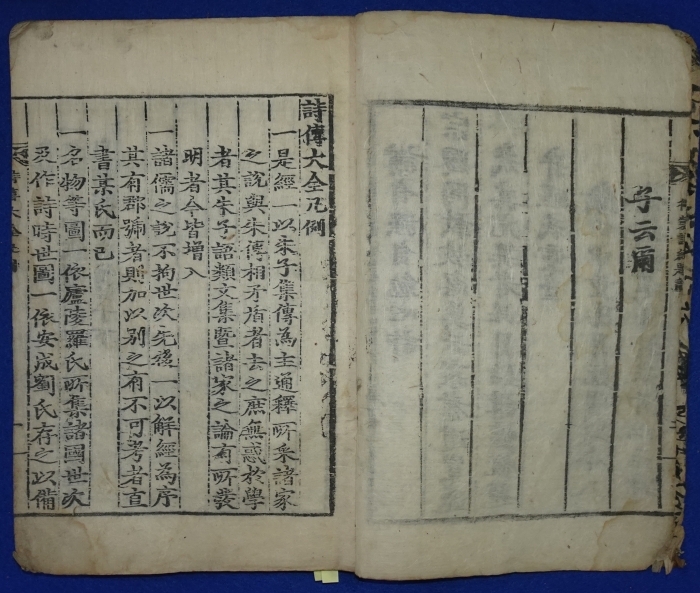 子云爾
詩傳大全凡例
一是經一以朱子集傳為主通釋所采諸家
之說與朱傳相矛盾者去之庶無惑於學
者其朱子語類文集暨諸家之論有所發
明者今皆增入
一諸儒之說不拘世次先後一以解經為序
其有郡號者則加以別之有不可考者直
書某氏而已
一名物等圖一依廬陵羅氏所集諸國世次
及作詩時世圖一依安成劉氏存之以備